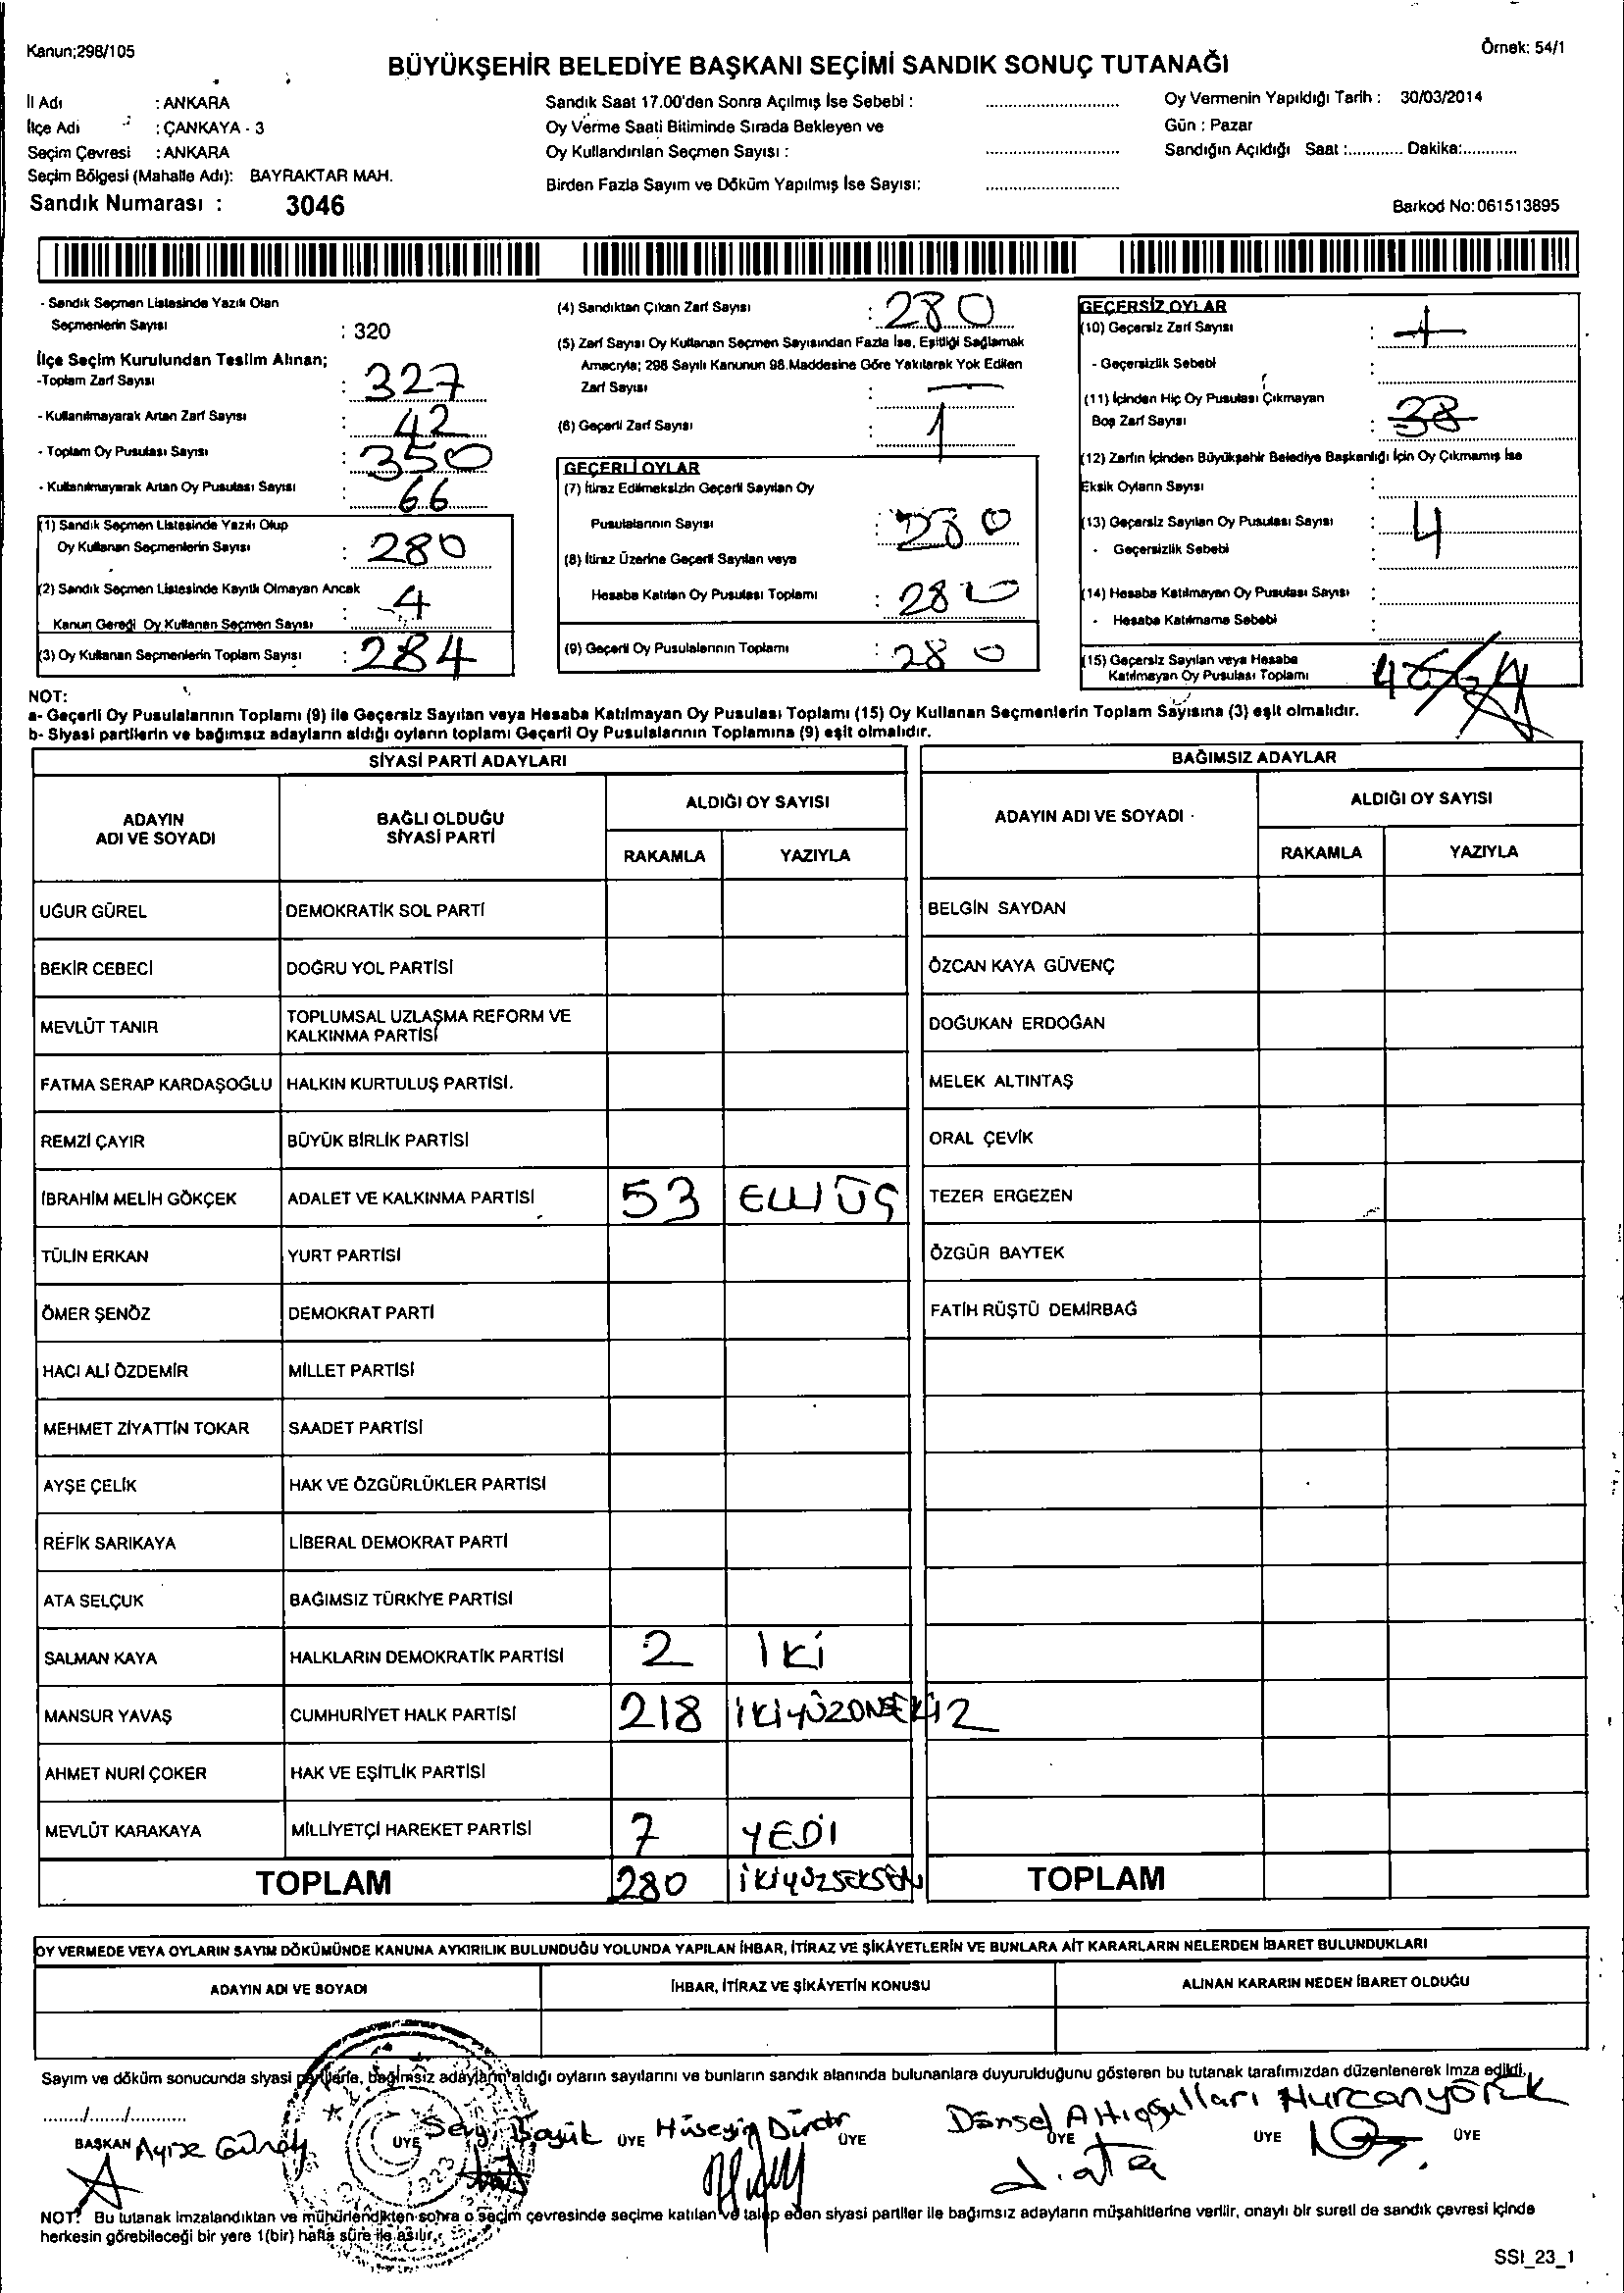 Kanun;298/105
Örnek: 54/1
BÜYÜKŞEHİR BELEDİYE BAŞKANI SEÇİMİ SANDIK SONUÇ TUTANAĞI
İl Adı : ANKARA
İlçe Adı : ÇANKAYA - 3
Seçim Çevresi : ANKARA
Seçim Bölgesi (Mahalle Adı): BAYRAKTAR MAH.
Sandık Numarası : 3046
Sandık Saat 17.00'den Sonra Açılmış İse Sebebi : ............................
Oy Verme Saati Bitiminde Sırada Bekleyen ve
Oy Kullandırılan Seçmen Sayısı : ............................
Birden Fazla Sayım ve Döküm Yapılmış İse Sayısı: ............................
Oy Vermenin Yapıldığı Tarih : 30/03/2014
Gün : Pazar
Sandığın Açıldığı Saat :............ Dakika:............
Barkod No:061513895
- Sandık Seçmen Listesinde Yazılı Olan
Seçmenlerin Sayısı : 320
İlçe Seçim Kurulundan Teslim Alınan;
-Toplam Zarf Sayısı : 327
- Kullanılmayarak Artan Zarf Sayısı : 42
- Toplam Oy Pusulası Sayısı : 350
- Kullanılmayarak Artan Oy Pusulası Sayısı : 66
(1) Sandık Seçmen Listesinde Yazılı Olup
Oy Kullanan Seçmenlerin Sayısı : 280
(2) Sandık Seçmen Listesinde Kayıtlı Olmayan Ancak
Kanun Gereği Oy Kullanan Seçmen Sayısı : 4
(3) Oy Kullanan Seçmenlerin Toplam Sayısı : 284
(4) Sandıktan Çıkan Zarf Sayısı : 280
(5) Zarf Sayısı Oy Kullanan Seçmen Sayısından Fazla İse, Eşitliği Sağlamak
Amacıyla; 298 Sayılı Kanunun 98.Maddesine Göre Yakılarak Yok Edilen
Zarf Sayısı :
(6) Geçerli Zarf Sayısı :
GEÇERLİ OYLAR
(7) İtiraz Edilmeksizin Geçerli Sayılan Oy
Pusulalarının Sayısı : 280
(8) İtiraz Üzerine Geçerli Sayılan veya
Hesaba Katılan Oy Pusulası Toplamı : 280
(9) Geçerli Oy Pusulalarının Toplamı : 280
GEÇERSİZ OYLAR
(10) Geçersiz Zarf Sayısı :
- Geçersizlik Sebebi :
(11) İçinden Hiç Oy Pusulası Çıkmayan
Boş Zarf Sayısı : 38
(12) Zarfın İçinden Büyükşehir Belediye Başkanlığı İçin Oy Çıkmamış İse
Eksik Oyların Sayısı :
(13) Geçersiz Sayılan Oy Pusulası Sayısı : 4
- Geçersizlik Sebebi :
(14) Hesaba Katılmayan Oy Pusulası Sayısı :
- Hesaba Katılmama Sebebi :
(15) Geçersiz Sayılan veya Hesaba
Katılmayan Oy Pusulası Toplamı
NOT:
a- Geçerli Oy Pusulalarının Toplamı (9) ile Geçersiz Sayılan veya Hesaba Katılmayan Oy Pusulası Toplamı (15) Oy Kullanan Seçmenlerin Toplam Sayısına (3) eşit olmalıdır.
b- Siyasi partilerin ve bağımsız adayların aldığı oyların toplamı Geçerli Oy Pusulalarının Toplamına (9) eşit olmalıdır.
SİYASİ PARTİ ADAYLARI
BAĞIMSIZ ADAYLAR
ADAYIN ADI VE SOYADI
BAĞLI OLDUĞU SİYASİ PARTİ
ALDIĞI OY SAYISI
RAKAMLA YAZIYLA
ADAYIN ADI VE SOYADI
ALDIĞI OY SAYISI
RAKAMLA YAZIYLA
UĞUR GÜREL DEMOKRATİK SOL PARTİ BELGİN SAYDAN
BEKİR CEBECİ DOĞRU YOL PARTİSİ ÖZCAN KAYA GÜVENÇ
MEVLÜT TANIR TOPLUMSAL UZLAŞMA REFORM VE KALKINMA PARTİSİ DOĞUKAN ERDOĞAN
FATMA SERAP KARDAŞOĞLU HALKIN KURTULUŞ PARTİSİ. MELEK ALTINTAŞ
REMZİ ÇAYIR BÜYÜK BİRLİK PARTİSİ ORAL ÇEVİK
İBRAHİM MELİH GÖKÇEK ADALET VE KALKINMA PARTİSİ 53 ELLİ ÜÇ TEZER ERGEZEN
TÜLİN ERKAN YURT PARTİSİ ÖZGÜR BAYTEK
ÖMER ŞENÖZ DEMOKRAT PARTİ FATİH RÜŞTÜ DEMİRBAĞ
HACI ALİ ÖZDEMİR MİLLET PARTİSİ
MEHMET ZİYATTİN TOKAR SAADET PARTİSİ
AYŞE ÇELİK HAK VE ÖZGÜRLÜKLER PARTİSİ
REFİK SARIKAYA LİBERAL DEMOKRAT PARTİ
ATA SELÇUK BAĞIMSIZ TÜRKİYE PARTİSİ
SALMAN KAYA HALKLARIN DEMOKRATİK PARTİSİ 2 İKİ
MANSUR YAVAŞ CUMHURİYET HALK PARTİSİ 218 İKİYÜZONSEKİZ
AHMET NURİ ÇOKER HAK VE EŞİTLİK PARTİSİ
MEVLÜT KARAKAYA MİLLİYETÇİ HAREKET PARTİSİ 7 YEDİ
TOPLAM 280 İKİYÜZSEKSEN TOPLAM
OY VERMEDE VEYA OYLARIN SAYIM DÖKÜMÜNDE KANUNA AYKIRILIK BULUNDUĞU YOLUNDA YAPILAN İHBAR, İTİRAZ VE ŞİKÂYETLERİN VE BUNLARA AİT KARARLARIN NELERDEN İBARET BULUNDUKLARI
ADAYIN ADI VE SOYADI İHBAR, İTİRAZ VE ŞİKÂYETİN KONUSU ALINAN KARARIN NEDEN İBARET OLDUĞU
Sayım ve döküm sonucunda siyasi partilerle, bağımsız adayların aldığı oyların sayılarını ve bunların sandık alanında bulunanlara duyurulduğunu gösteren bu tutanak tarafımızdan düzenlenerek imza edildi.
......../......../............
BAŞKAN ÜYE ÜYE Hüseyin ÜYE ÜYE ÜYE ÜYE
NOT: Bu tutanak imzalandıktan ve mühürlendikten sonra o seçim çevresinde seçime katılan ve talep eden siyasi partiler ile bağımsız adayların müşahitlerine verilir, onaylı bir sureti de sandık çevresi içinde
herkesin görebileceği bir yere 1(bir) hafta süre ile asılır.
SSI_23_1